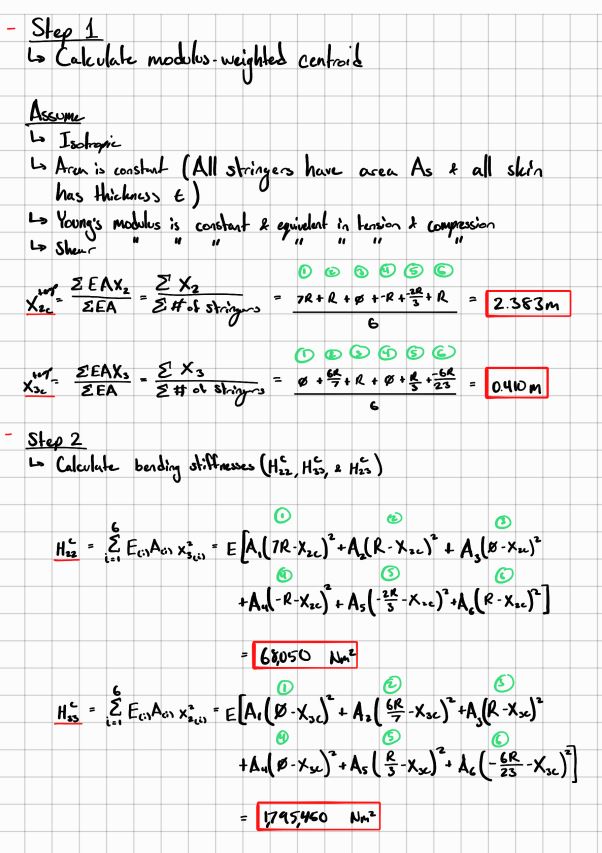 - Step 1
↳ Calculate modulus-weighted centroid
Assume
↳ Isotropic
↳ Area is constant (All stringers have area As & all skin
has thickness t)
↳ Young's modulus is constant & equivalent in tension & compression
↳ Shear " " " " " " "
① ② ③ ④ ⑤ ⑥
X₂c = ΣEAX₂ / ΣEA = ΣX₂ / Σ# of stringers = (7R + R + ∅ + -R + -2R/3 + R) / 6 = 2.383m
① ② ③ ④ ⑤ ⑥
X₃c = ΣEAX₃ / ΣEA = ΣX₃ / Σ# of stringers = (∅ + 6R/7 + R + ∅ + R/3 + -6R/23) / 6 = 0.410m
- Step 2
↳ Calculate bending stiffnesses (H₂₂ᶜ, H₃₃ᶜ, & H₂₃ᶜ)
① ② ③
H₂₂ᶜ = Σ⁶ᵢ₌₁ E₍ᵢ₎A₍ᵢ₎ x²₃₍ᵢ₎ = E[A₁(7R-X₂c)² + A₂(R-X₂c)² + A₃(∅-X₂c)²
④ ⑤ ⑥
+A₄(-R-X₂c)² + A₅(-2R/3-X₂c)² + A₆(R-X₂c)²]
= 68,050 Nm²
① ② ③
H₃₃ᶜ = Σ⁶ᵢ₌₁ E₍ᵢ₎A₍ᵢ₎ x²₂₍ᵢ₎ = E[A₁(∅-X₃c)² + A₂(6R/7-X₃c)² + A₃(R-X₃c)²
④ ⑤ ⑥
+A₄(∅-X₃c)² + A₅(R/3-X₃c)² + A₆(-6R/23-X₃c)²]
= 1,795,460 Nm²